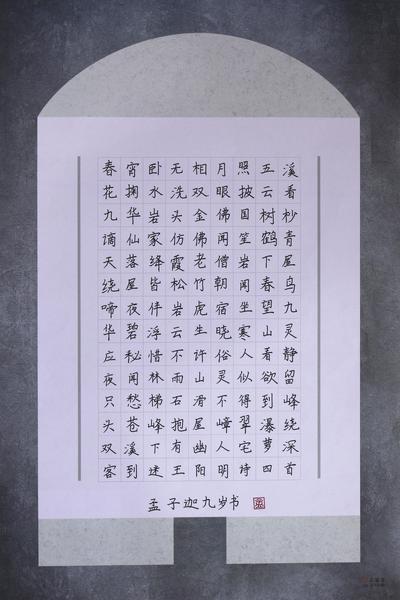 春宵卧无相月照五溪
花掬水洗双眼披云看
九华岩头金佛国树杪
谪仙家仿佛闻笙鹤青
天落绛霞老僧岩下屋
绕屋皆松竹朝闻春鸟
啼夜伴岩虎宿坐望九
华碧浮云生晓寒山灵
应秘惜不许俗人看静
夜闲林雨山灵似欲留
只愁梯石滑不得到峰
头苍峰抱屋嶂翠瀑绕
双溪下有幽人宅萝深
客到迷王阳明诗四首
孟子迦九岁书